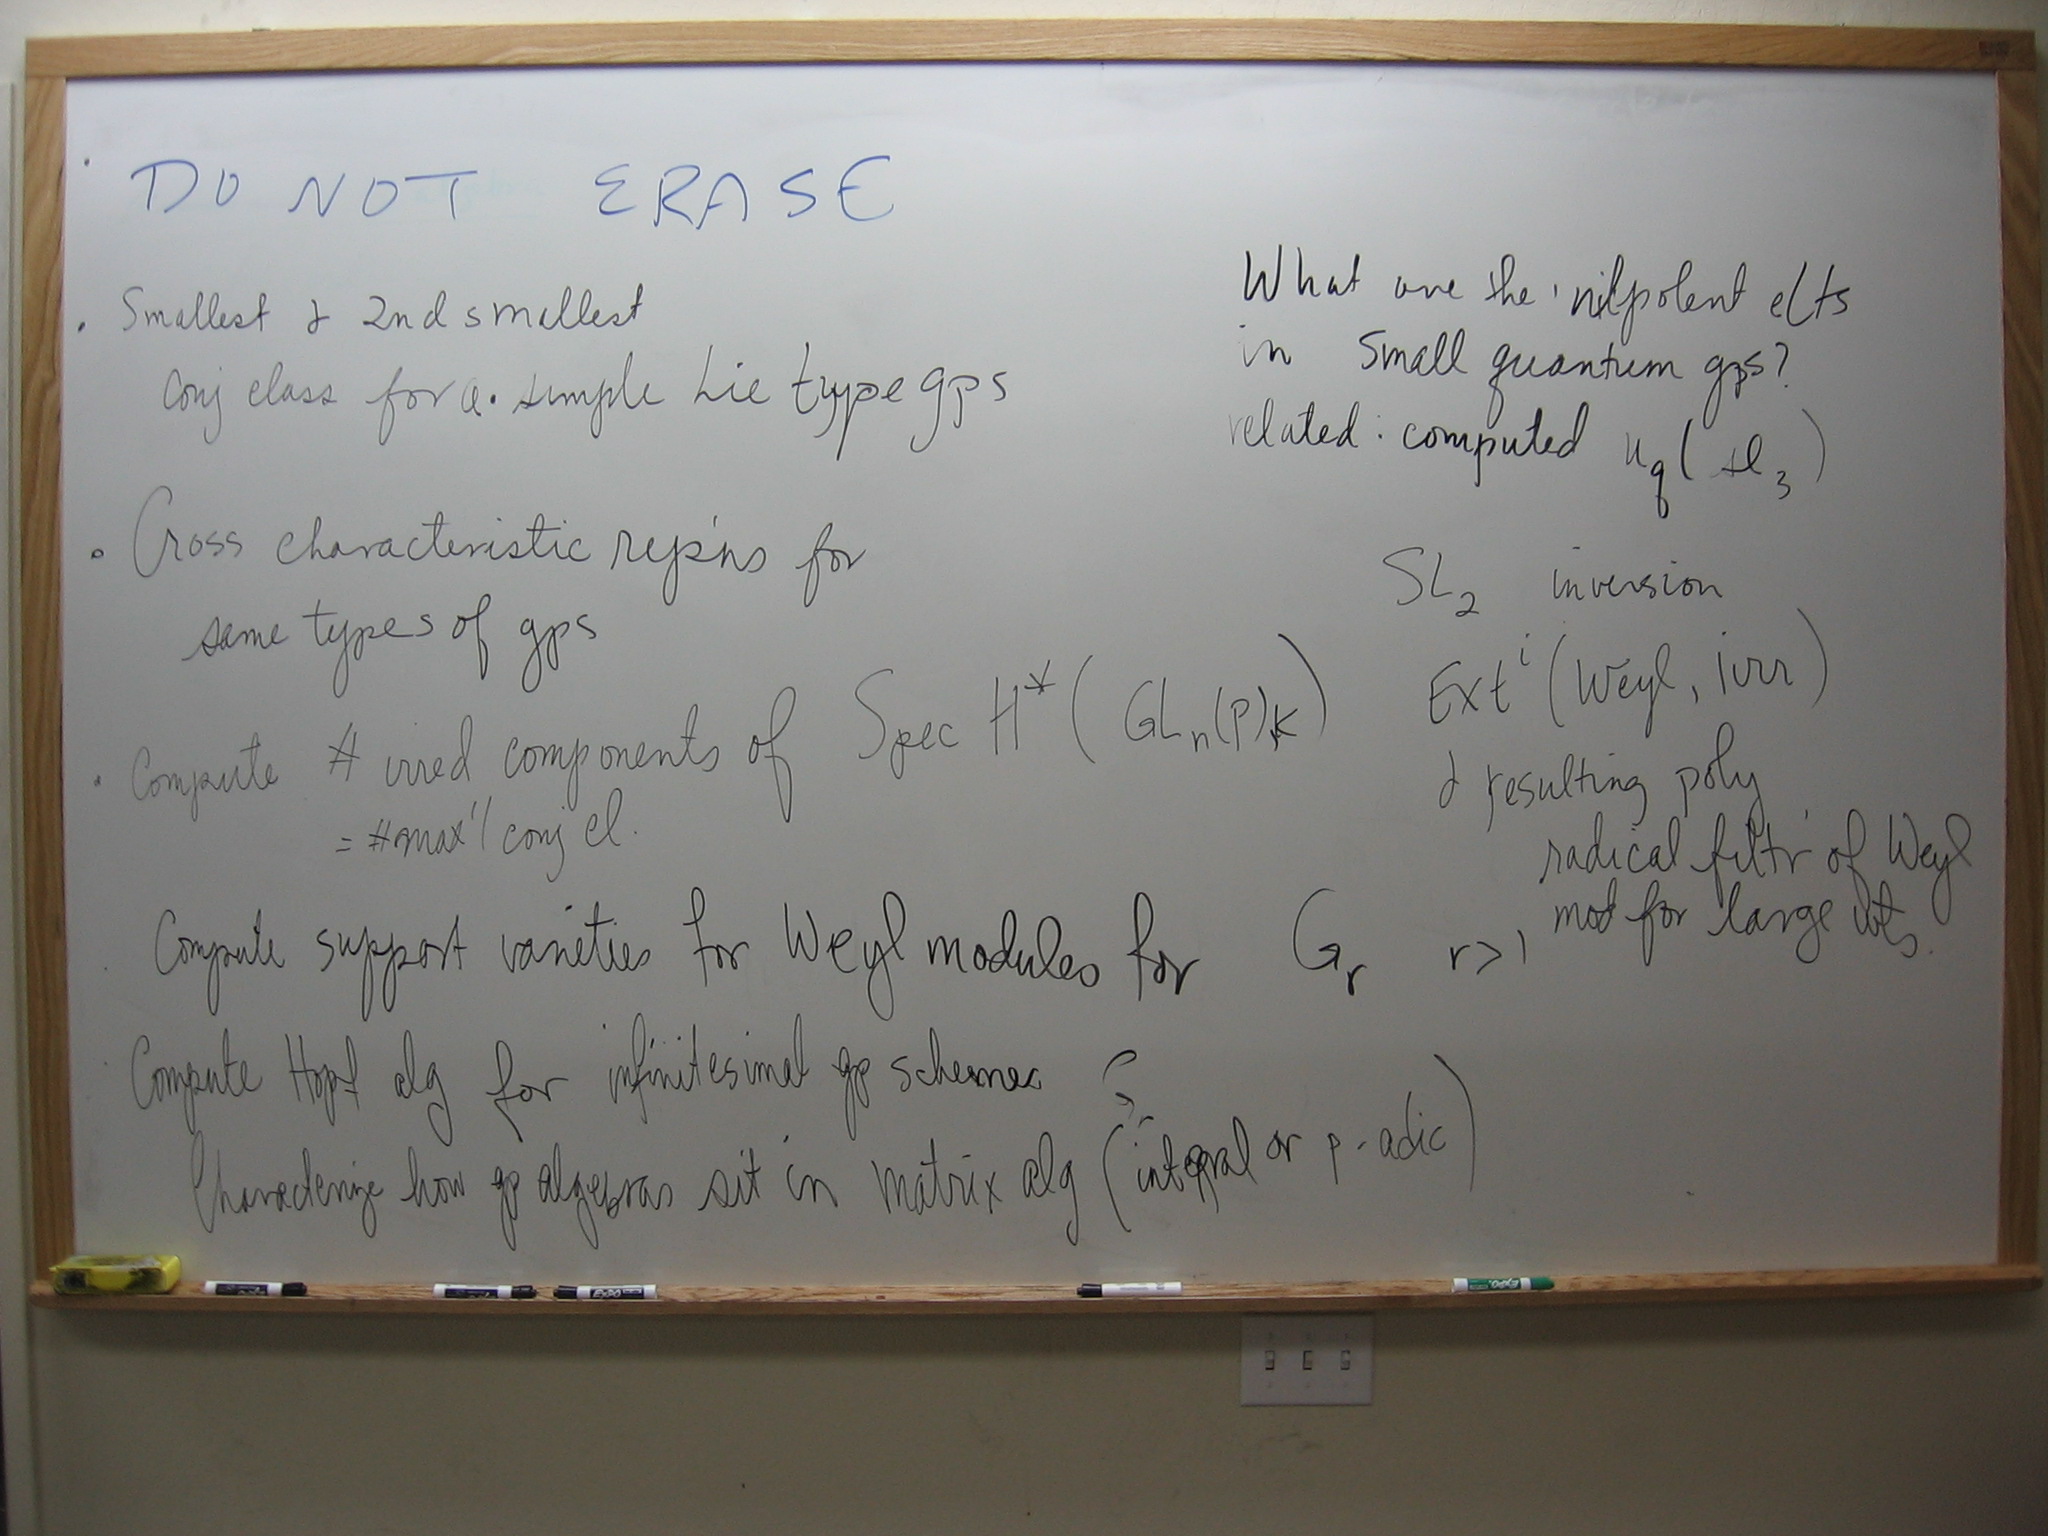 DO NOT ERASE
• Smallest & 2nd smallest
conj class for a. simple Lie type gps
• Cross characteristic rep'ns for
same types of gps
• Compute # irred components of Spec H*(GLn(p),k)
= # max'l conj cl.
Compute support varieties for Weyl modules for Gr r>1
Compute Hopf alg for infinitesimal gp schemes Gr
Characterize how gp algebras sit in matrix alg (integral or p-adic)
What are the nilpotent elts
in small quantum gps?
related: computed uq(sl3)
SL2 inversion
Ext^i (Weyl, irr)
& resulting poly
radical filtr' of Weyl
mod for large wts.
EXPO
EXPO